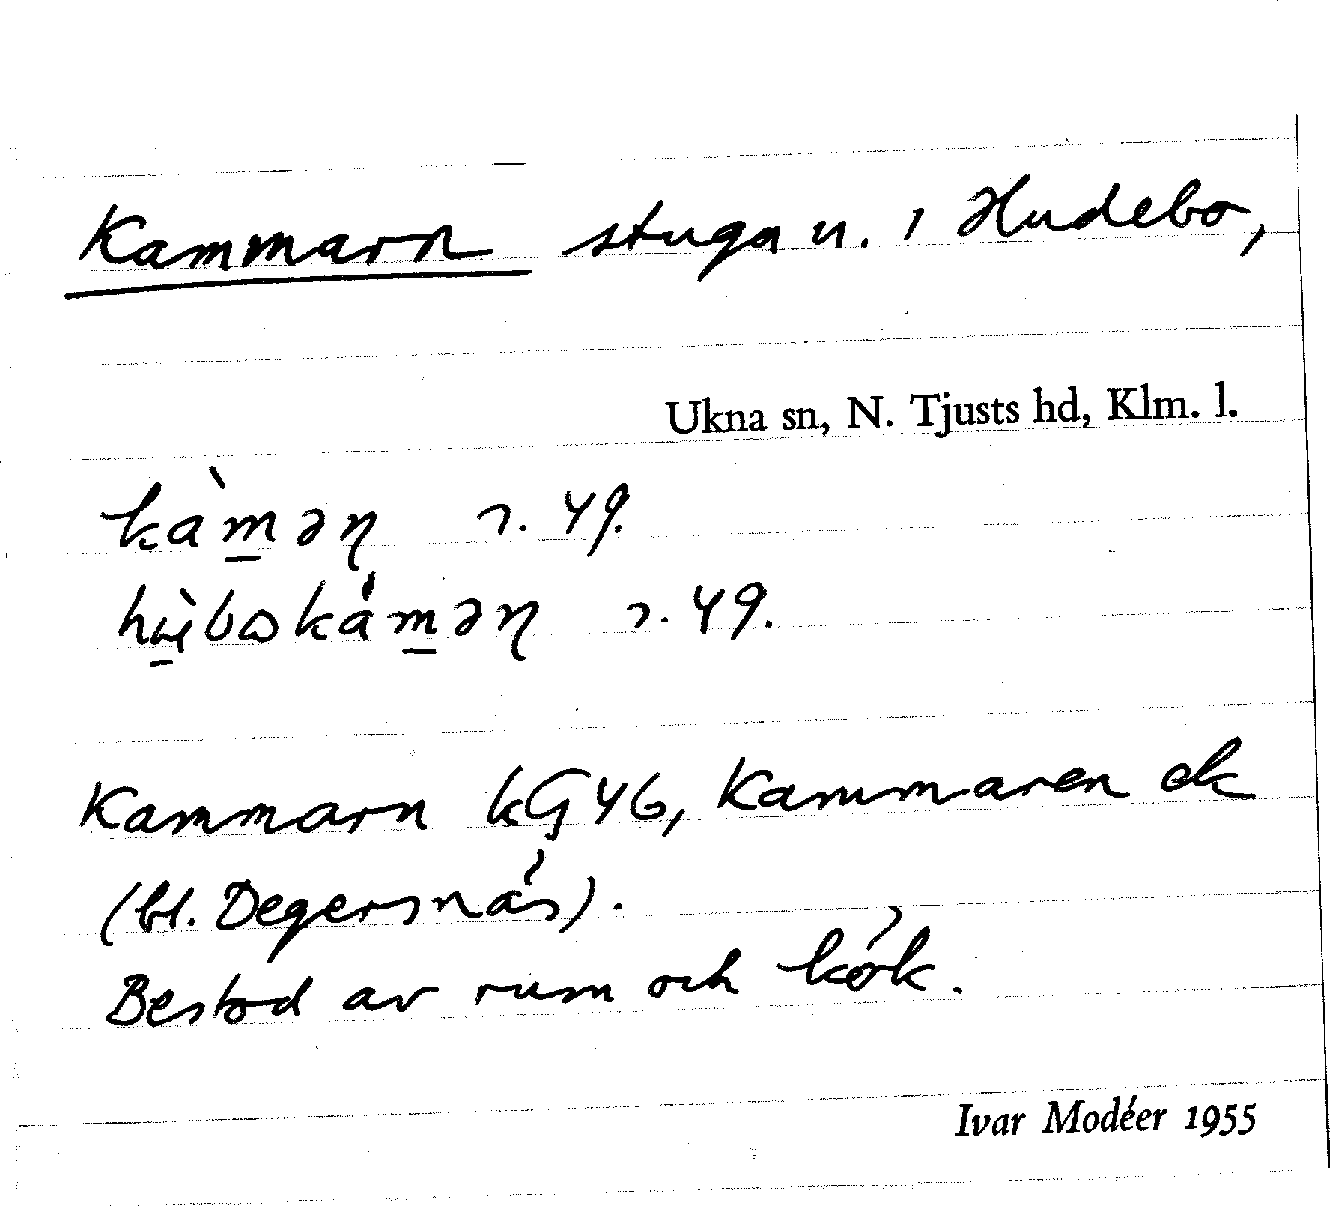 Kammarn stuga u. i Hudebo,
Ukna sn, N. Tjusts hd, Klm. l.
kàm̲əɳ r. 49.
Kammarn kG 46, Kammaren ek
(bl. Degersnäs).
Bestod av rum och kök.
Ivar Modéer 1955